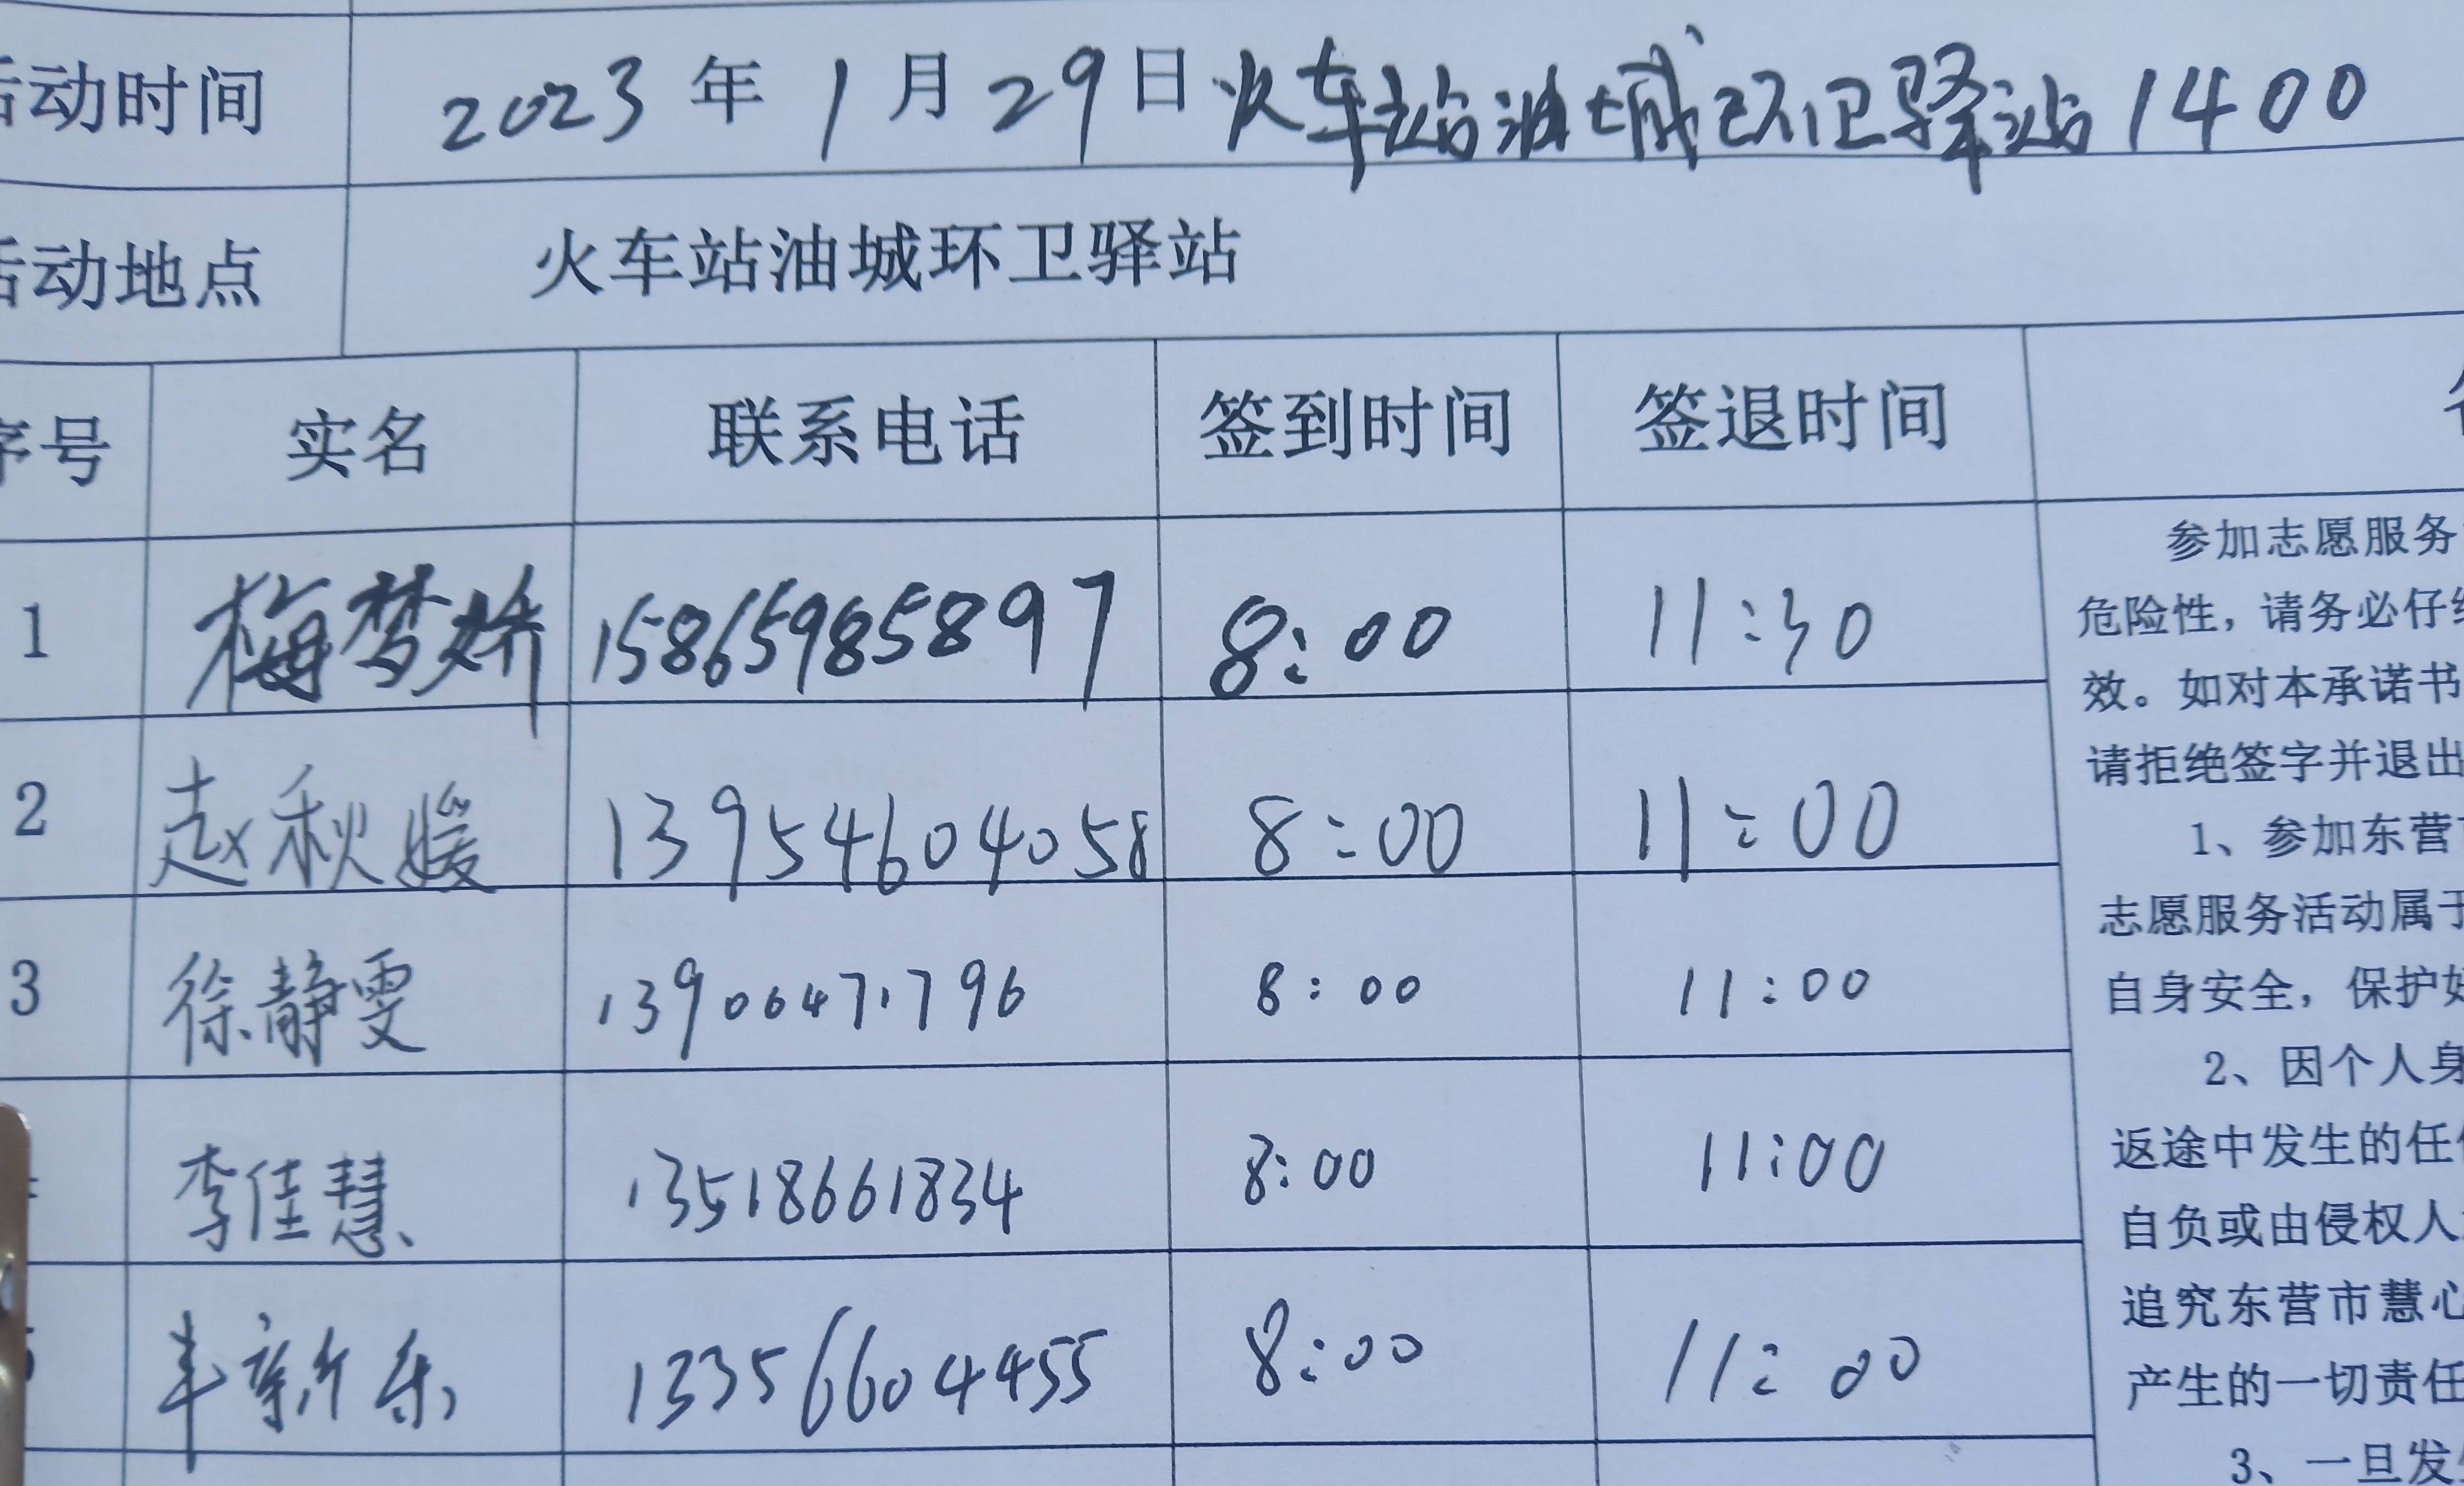 活动时间 2023年1月29日火车站油城环卫驿站1400
活动地点 火车站油城环卫驿站
序号 实名 联系电话 签到时间 签退时间
1 梅梦娇 15865985897 8:00 11:30
2 赵秋媛 13954604058 8:00 11:00
3 徐静雯 13906471796 8:00 11:00
李佳慧 13518661834 8:00 11:00
13356604455 8:00 11:00
参加志愿服务
危险性，请务必仔细
效。如对本承诺书
请拒绝签字并退出
1、参加东营
志愿服务活动属于
自身安全，保护好
2、因个人身
返途中发生的任何
自负或由侵权人
追究东营市慧心
产生的一切责任
3、一旦发生